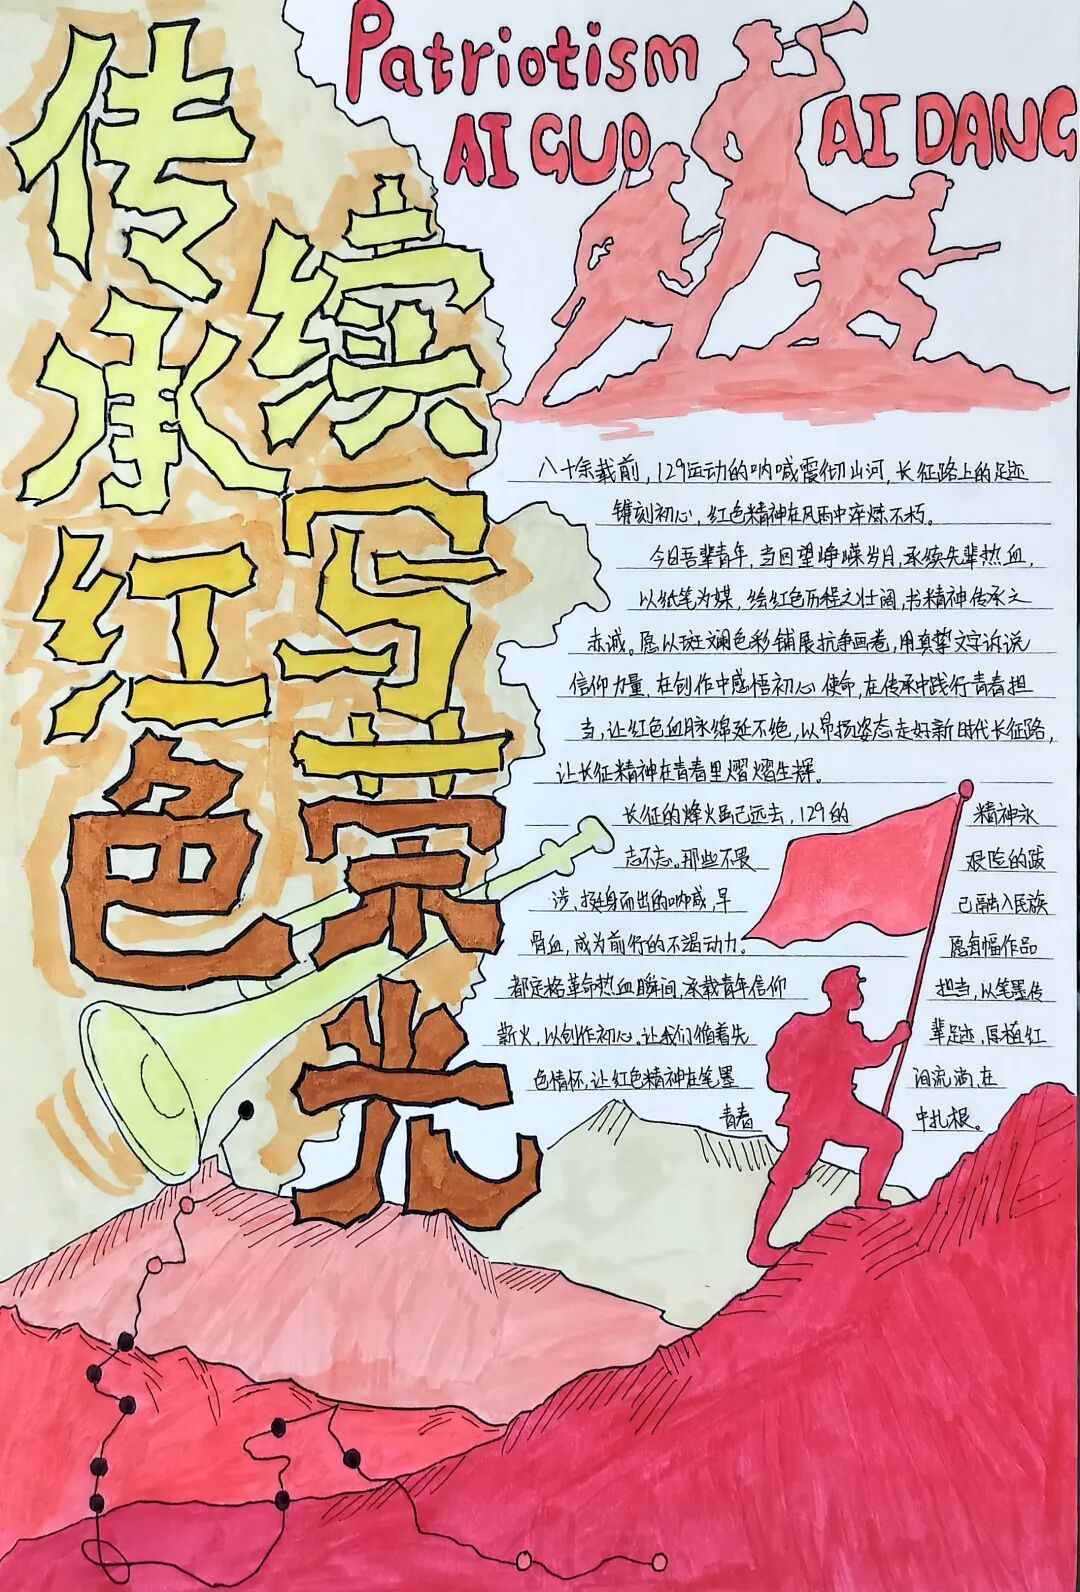 传承红色
续写荣光
Patriotism
AI GUO
AI DANG
八十余载前,129运动的呐喊震彻山河,长征路上的足迹
镌刻初心,红色精神在风雨中淬炼不朽。
今日吾辈青年,当回望峥嵘岁月,承续先辈热血,
以纸笔为媒,绘红色历程之壮阔,书精神传承之
赤诚。愿以斑斓色彩铺展抗争画卷,用真挚文字诉说
信仰力量,在创作中感悟初心使命,在传承中践行青春担
当,让红色血脉绵延不绝,以昂扬姿态走好新时代长征路,
让长征精神在青春里熠熠生辉。
长征的烽火虽已远去,129的 精神永
志不忘。那些不畏 艰险的跋
涉、挺身而出的呐喊,早 已融入民族
骨血,成为前行的不竭动力。 愿每幅作品
都定格革命热血瞬间,承载青年信仰 担当,以笔墨传
薪火,以创作初心。让我们循着先 辈足迹,厚植红
色情怀,让红色精神在笔墨 间流淌,在
青春 中扎根。